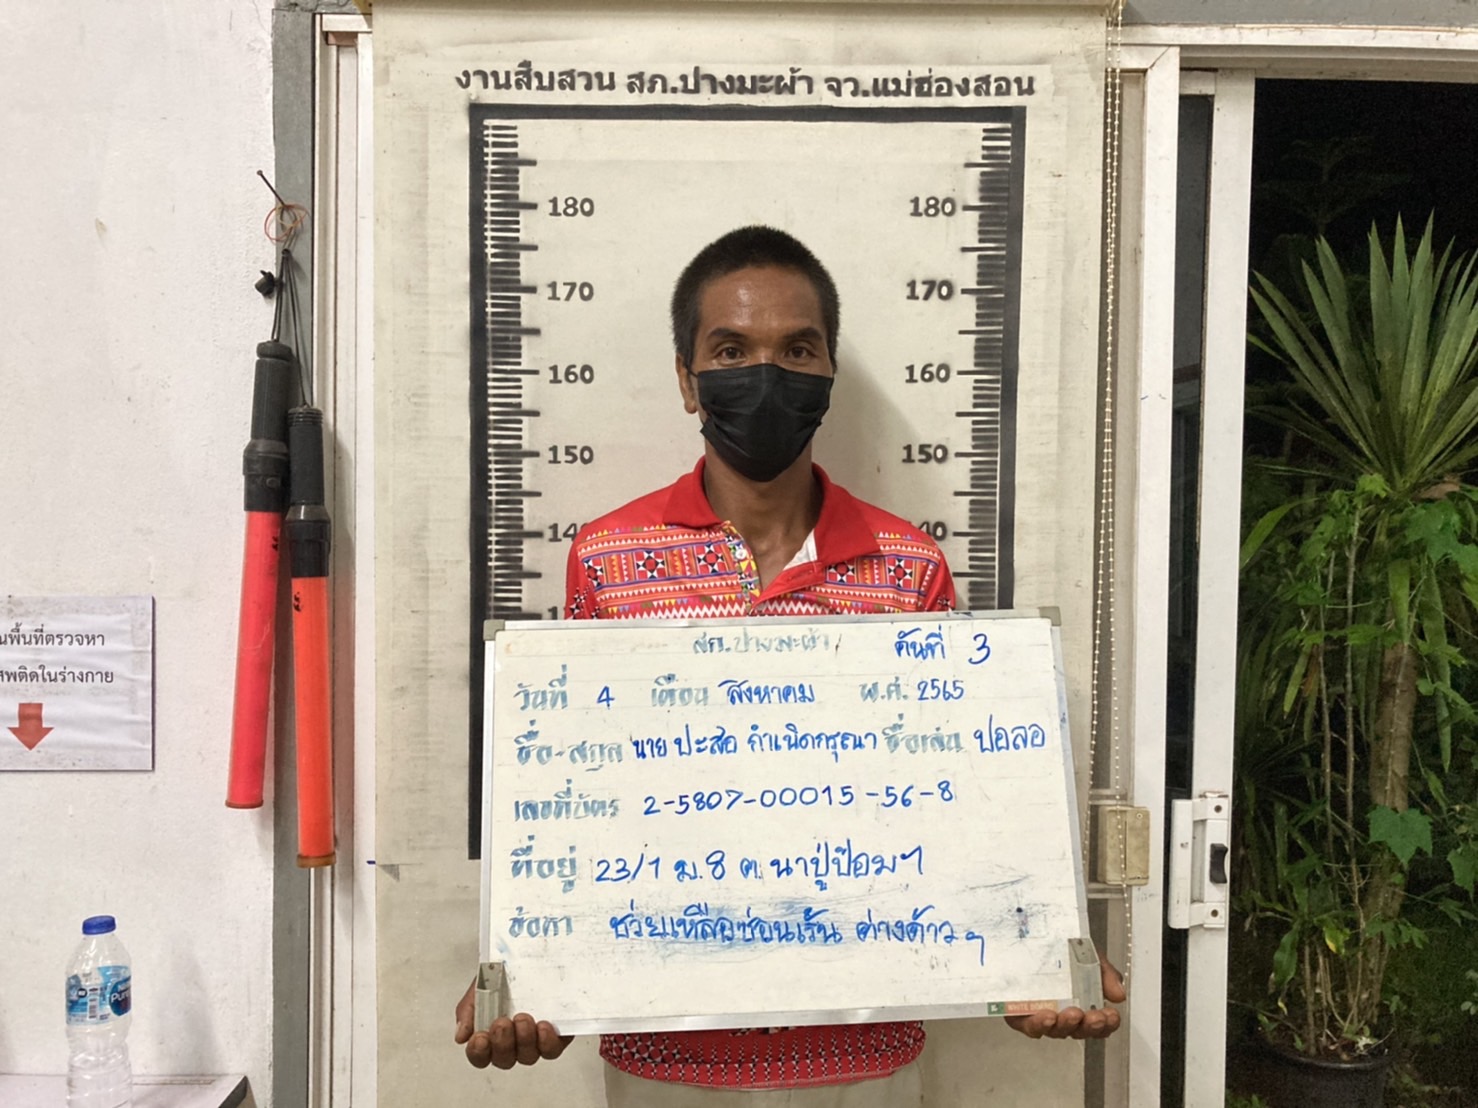 งานสืบสวน สภ.ปางมะผ้า จว.แม่ฮ่องสอน
180 180
170 170
160 160
150 150
140 140
สภ.ปางมะผ้า คันที่ 3
วันที่ 4 เดือน สิงหาคม พ.ศ. 2565
ชื่อ-สกุล นาย ปะสอ กำเนิดกรุณา ชื่อเล่น ปอลอ
เลขที่บัตร 2-5807-00015-56-8
ที่อยู่ 23/1 ม.8 ต. นาปู่ป้อมฯ
ข้อหา ช่วยเหลือซ่อนเร้น ต่างด้าวฯ
WHITE BOARD
นพื้นที่ตรวจหา
สพติดในร่างกาย